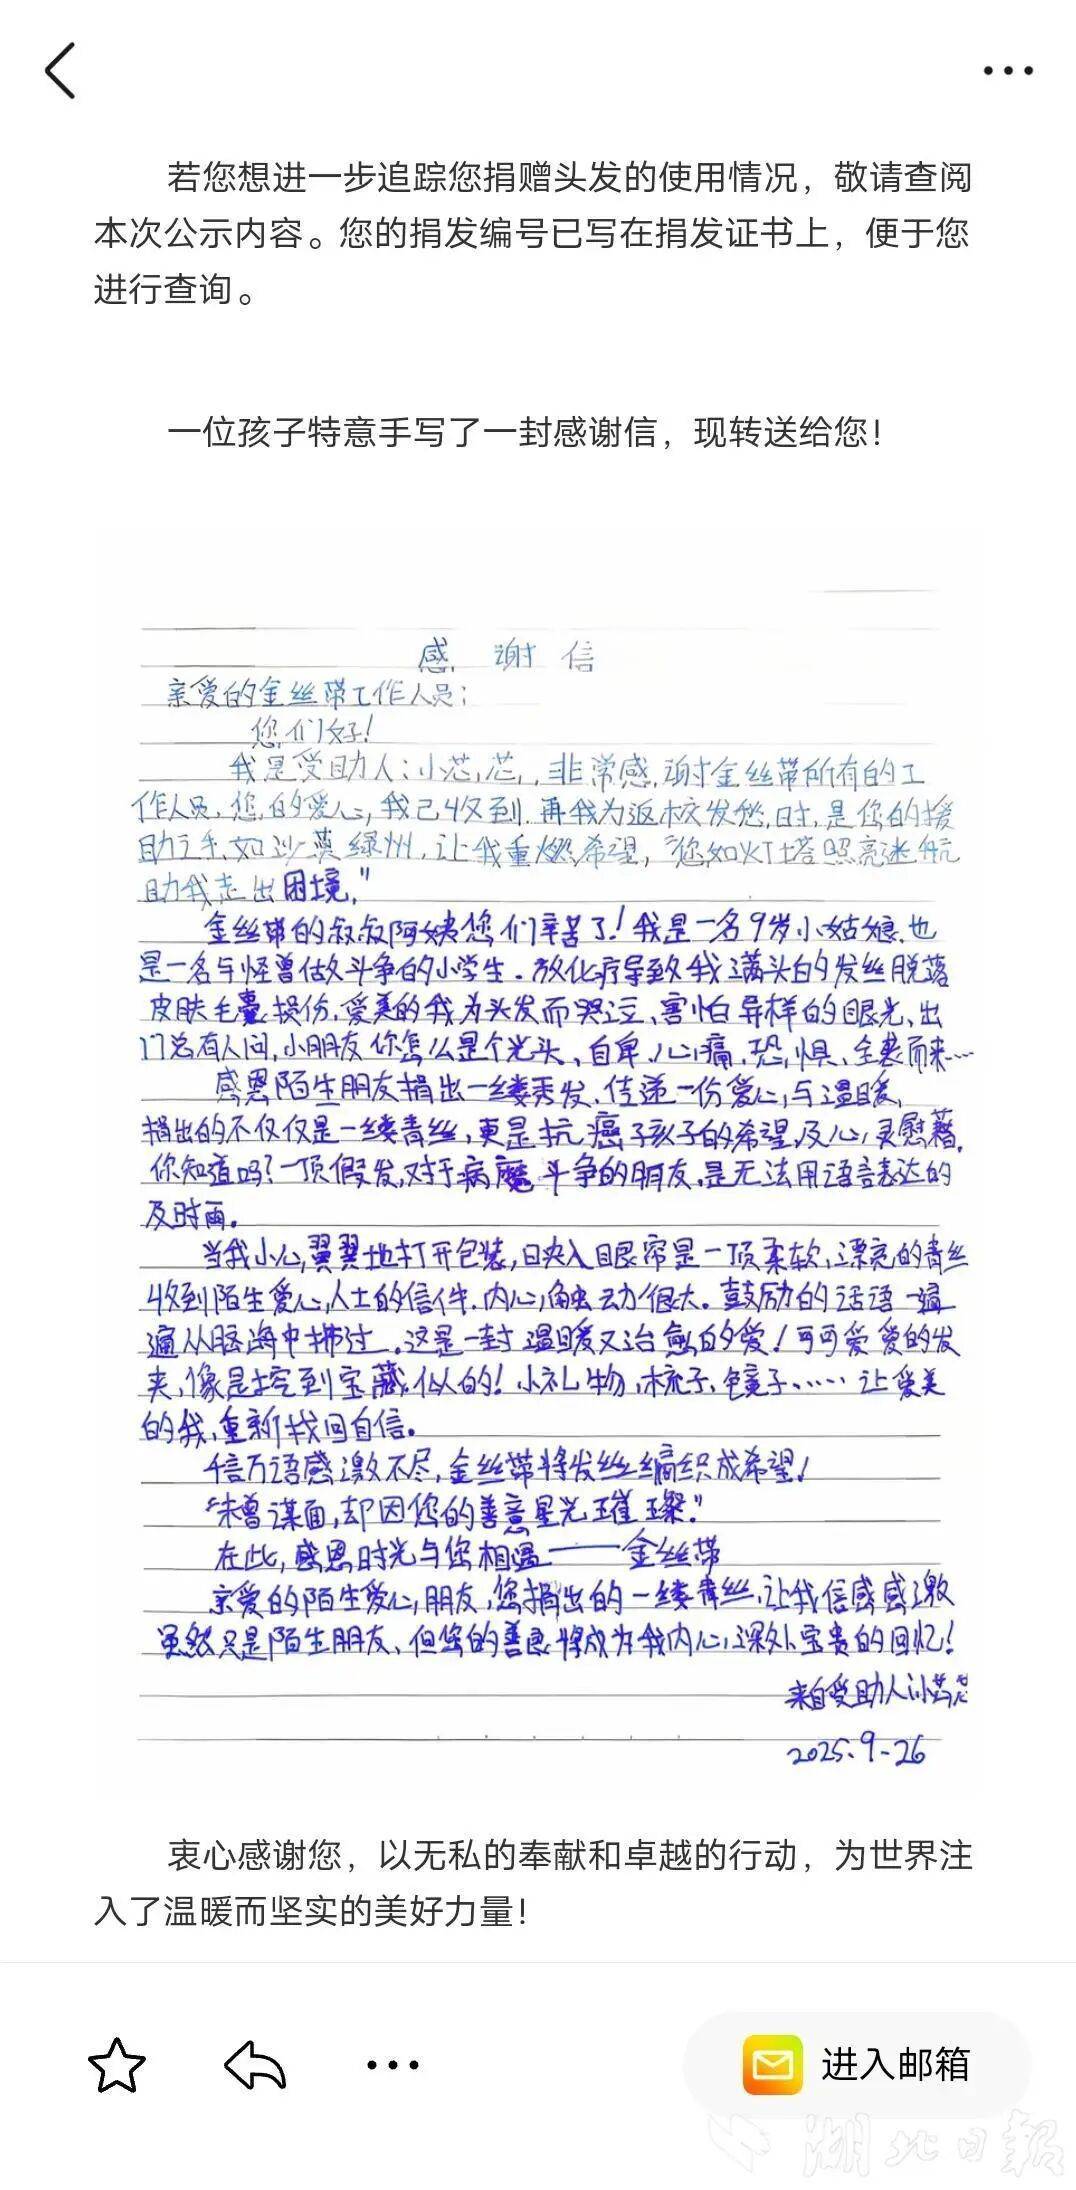 若您想进一步追踪您捐赠头发的使用情况，敬请查阅
本次公示内容。您的捐发编号已写在捐发证书上，便于您
进行查询。
一位孩子特意手写了一封感谢信，现转送给您！
感谢信
亲爱的金丝带工作人员：
您们好！
我是受助人：小芯芯，非常感谢金丝带所有的工
作人员，您的爱心，我已收到，再我为返校发愁时，是您的援
助之手，如沙漠绿州，让我重燃希望，“您如火灯塔照亮迷航
助我走出困境，”
金丝带的叔叔阿姨您们辛苦了！我是一名9岁小姑娘，也
是一名与怪兽做斗争的小学生。放化疗导致我满头的发丝脱落
皮肤毛囊损伤，爱美的我为头发而哭过、害怕异样的眼光、出
门总有人问，小朋友你怎么是个光头、自卑、心痛、恐惧、全袭而来…
感恩陌生朋友捐出一缕秀发，传递一份爱心，与温暖，
捐出的不仅仅是一缕青丝，更是抗癌子孩子的希望及心灵慰藉，
你知道吗？一顶假发，对于病魔斗争的朋友，是无法用语言表达的
及时雨。
当我小心翼翼地打开包装，映入眼帘是一顶柔软，漂亮的青丝
收到陌生爱心人士的信件，内心触动很大。鼓励的话语一遍
遍从脑海中拂过。这是一封温暖又治愈的爱！可可爱爱的发
夹，像是挖到宝藏似的！小礼物，梳子、镜子……让爱美
的我，重新找回自信。
千言万语感激不尽，金丝带将发丝编织成希望！
“未曾谋面，却因您的善意星光璀璨。”
在此，感恩时光与您相遇——金丝带
亲爱的陌生爱心朋友，您捐出的一缕青丝，让我倍感感激
虽然只是陌生朋友、但您的善良将成为我内心深处宝贵的回忆！
来自受助人小芯芯
2025.9-26
衷心感谢您，以无私的奉献和卓越的行动，为世界注
入了温暖而坚实的美好力量！
进入邮箱
湖北日报